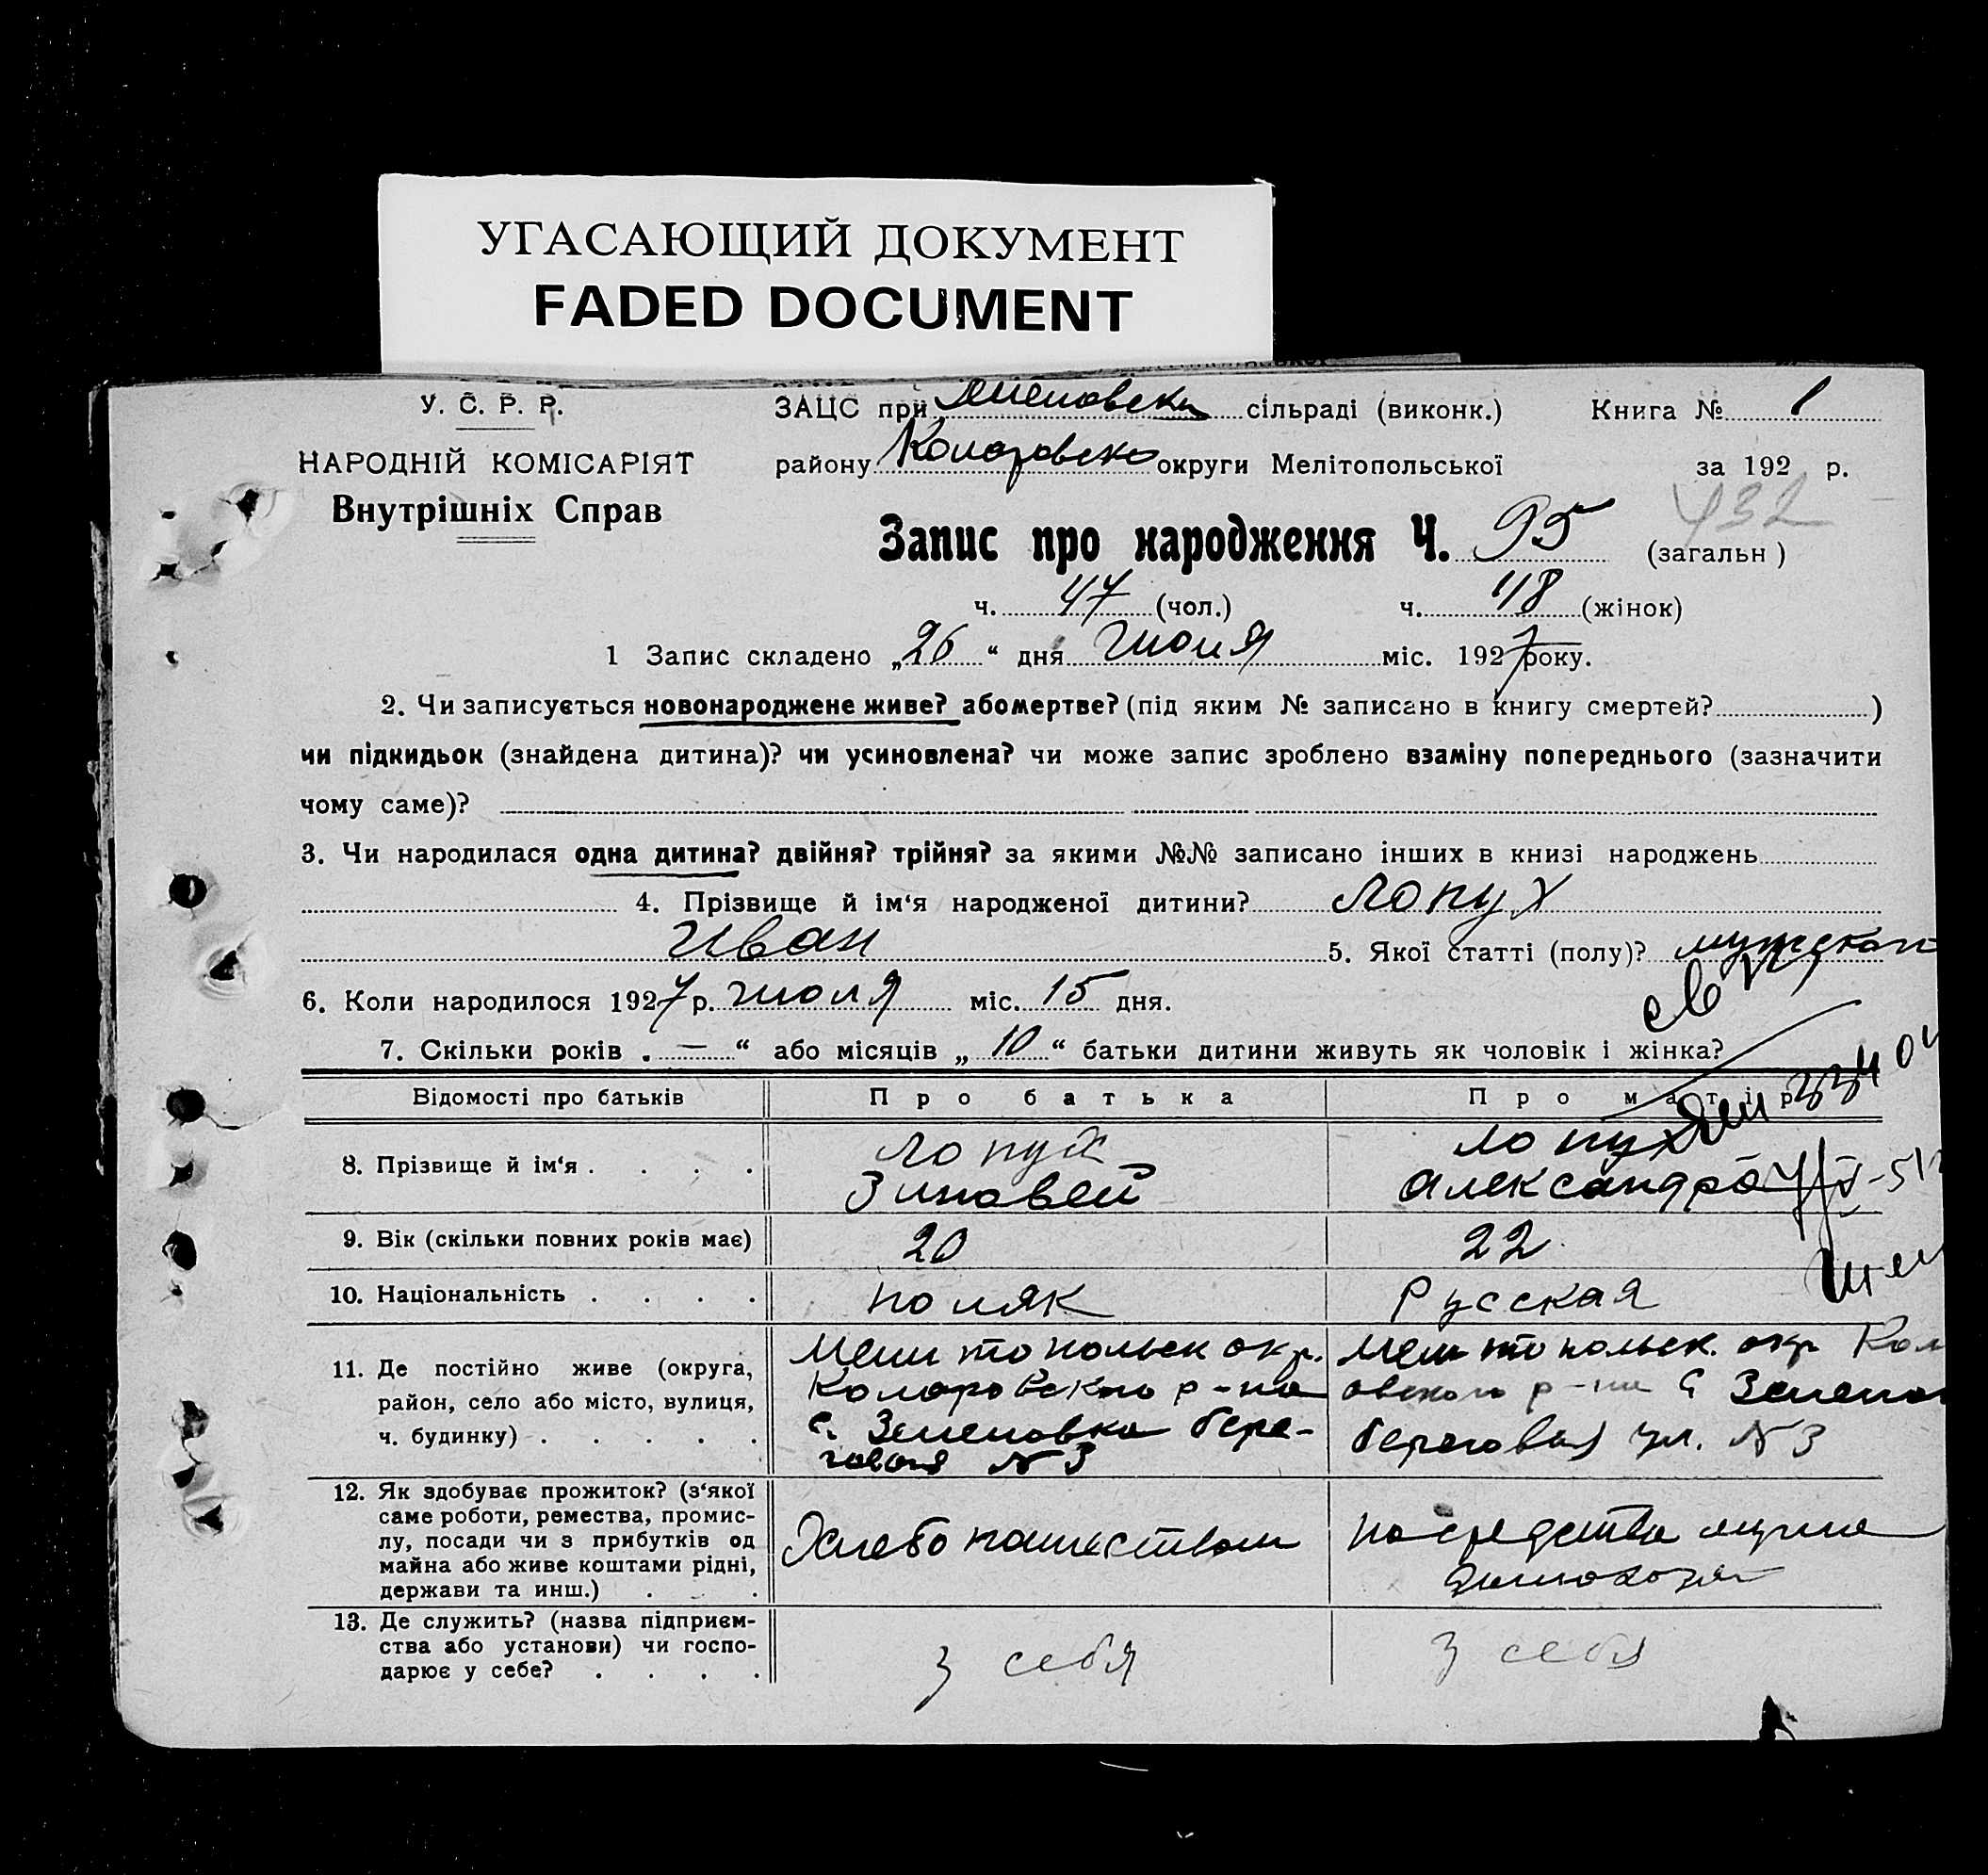 УГАСАЮЩИЙ ДОКУМЕНТ
FADED DOCUMENT
У. С. Р. Р.
НАРОДНІЙ КОМІСАРІЯТ
Внутрішніх Справ
ЗАЦС при сільраді (виконк.) Книга № 1
району округи Мелітопольської за 192 р.
432
Запис про народження Ч. 95 (загальн )
ч. 47 (чол.) ч. 48 (жінок)
1 Запис складено „26“ дня июля міс. 1927 року.
2. Чи записується новонароджене живе? або мертве? (під яким № записано в книгу смертей? )
чи підкидьок (знайдена дитина)? чи усиновлена? чи може запис зроблено взаміну попереднього (зазначити
чому саме)?
3. Чи народилася одна дитина? двійня? трійня? за якими №№ записано інших в книзі народжень
4. Прізвище й ім‘я народженої дитини? Лопух
Иван 5. Якої статті (полу)? мужской
6. Коли народилося 1927 р. июля міс. 15 дня.
7. Скільки років „ — “ або місяців „ 10 “ батьки дитини живуть як чоловік і жінка?
Відомості про батьків Про батька Про матір
8. Прізвище й ім‘я . . . . Лопух Зиновей Лопух Александра
9. Вік (скільки повних років має) 20 22
10. Національність . . . . поляк Русская
11. Де постійно живе (округа, район, село або місто, вулиця, ч. будинку) . . . . .
Мелитопольск окр.
р-на
с. Зеленовка бере-
говая № 3
Мелитопольск. окр
р-на с
береговая ул. № 3
12. Як здобуває прожиток? (з‘якої
саме роботи, ремества, промис-
лу, посади чи з прибутків од
майна або живе коштами рідні,
держави та инш.) . . .
Хлебопашеством
на средства мужа
13. Де служить? (назва підприєм-
ства або установи) чи госпо-
дарює у себе? . . . .
у себя
у себя